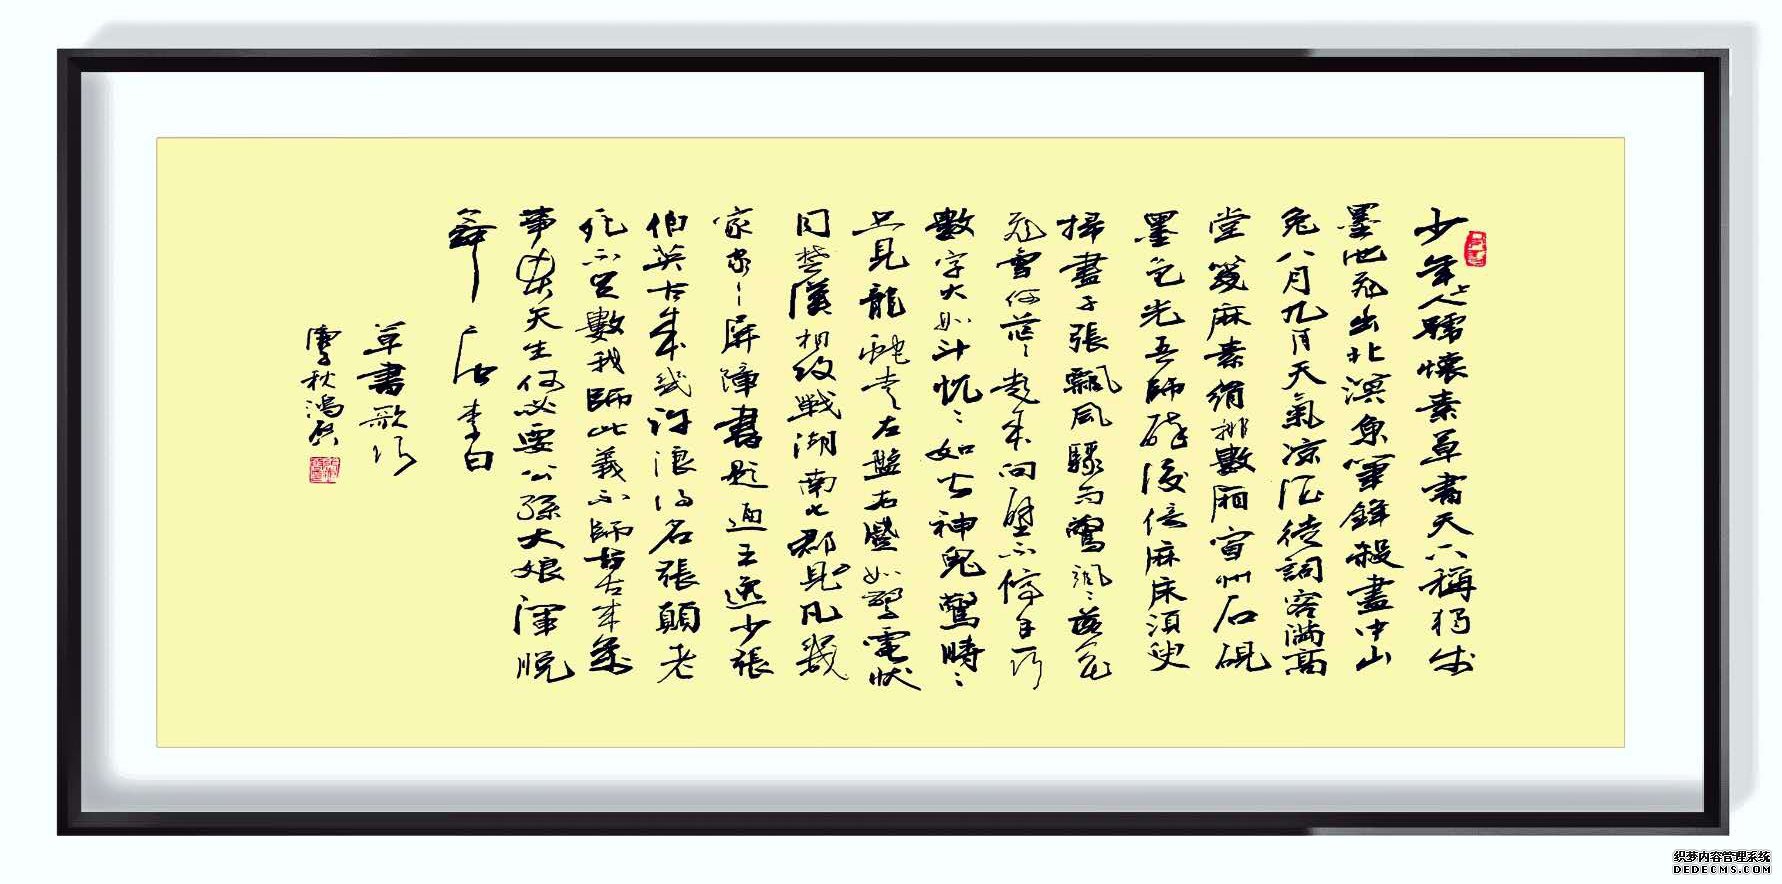 少年上人號懷素草書天下稱獨步
墨池飛出北溟魚筆鋒殺盡中山
兔八月九月天氣涼酒徒詞客滿高
堂箋麻素絹排數廂宣州石硯
墨色光吾師醉後倚麻床須臾
掃盡千張飄風驟雨驚颯〻落花
飛雪何茫〻起來向壁不停手一行
數字大如斗恍〻如聞神鬼驚時〻
只見龍蛇走左盤右蹙如驚電狀
同楚漢相攻戰湖南七郡見凡幾
家家〻屏障書題遍王逸少張
伯英古來幾許浪得名張顛老
死不足數我師此義不師古古來萬
事貴天生何必要公孫大娘渾脫
舞 唐李白
草書歌行
秋鴻
织梦内容管理系统
DEDECMS.COM